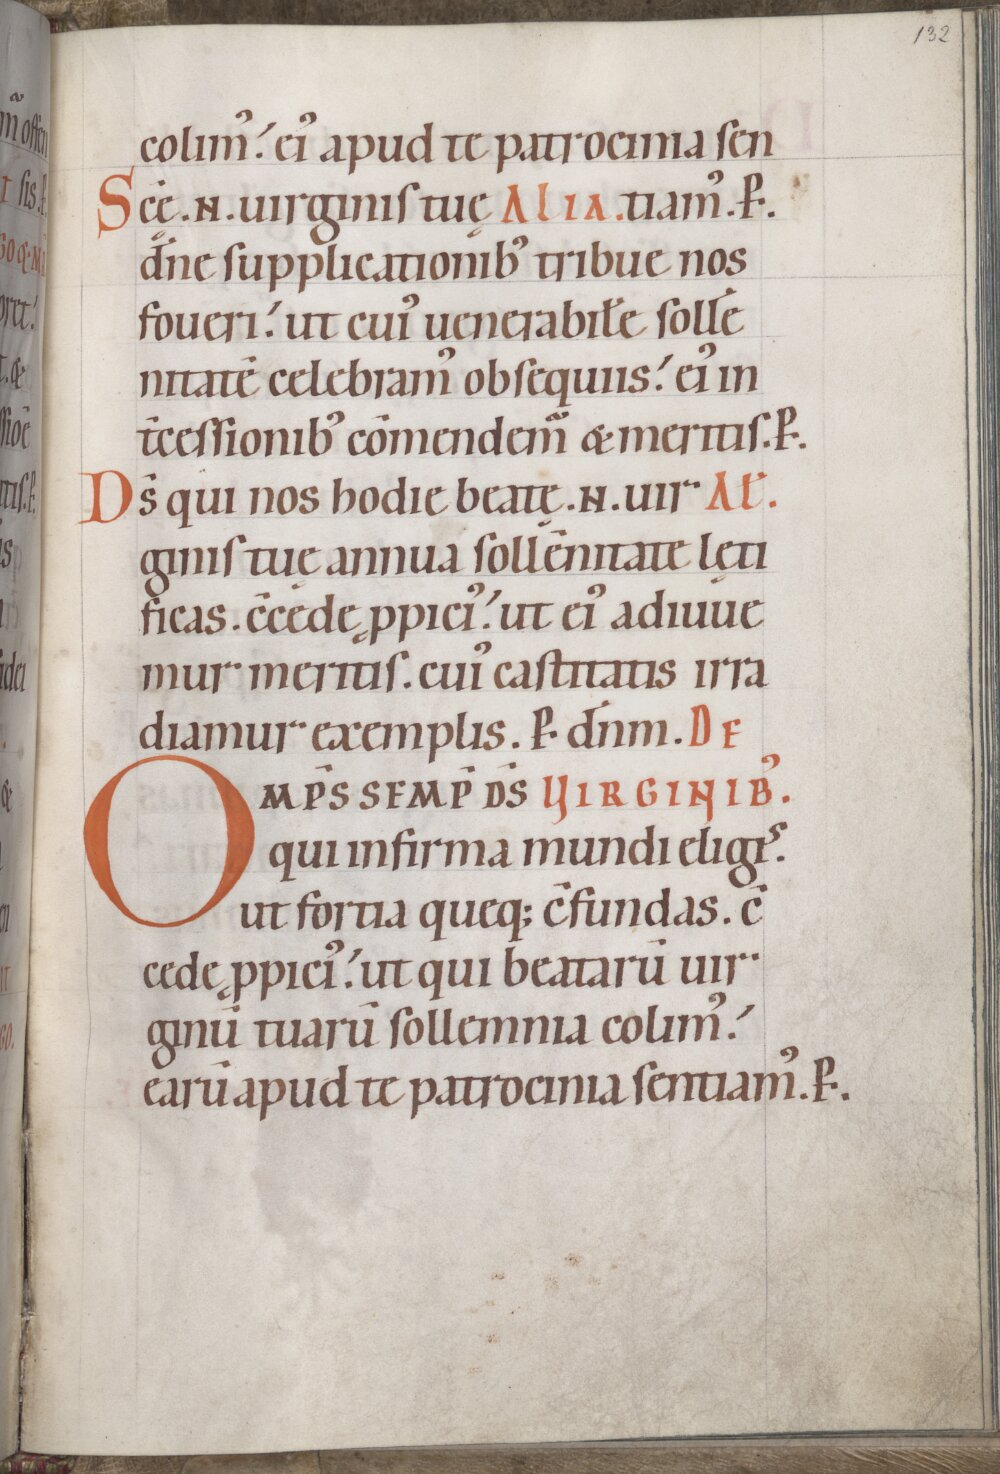 132
colim᾽: ei᾽ apud te patrocinia sen
Scē. N. uirginis tuę ALIA. tiam᾽. P.
dn̄e supplicationib᾽ tribue nos
foueri: ut cui᾽ uenerabiłe sollē
nitatē celebram᾽ obsequiis: ei᾽ in
t̄cessionib᾽ cōmendem̃ & meritis. P.
Ds̄ qui nos hodie beatę. N. uir AŁ.
ginis tuę annua sollēnitate lęti
ficas. c̄cede ꝓpici᾽: ut ei᾽ adiuue
mur meritis. cui᾽ castitatis irra
diamur exemplis. P. dn̄m. DE
OMP̄S SEMP̄ DS̄ VIRGINIB᾽.
qui infirma mundi eligis.
ut fortia queq; c̄fundas. c̄
cede ꝓpici᾽: ut qui beatarū uir
ginū tuarū sollemnia colim᾽:
earū apud te patrocinia sentiam᾽. P.